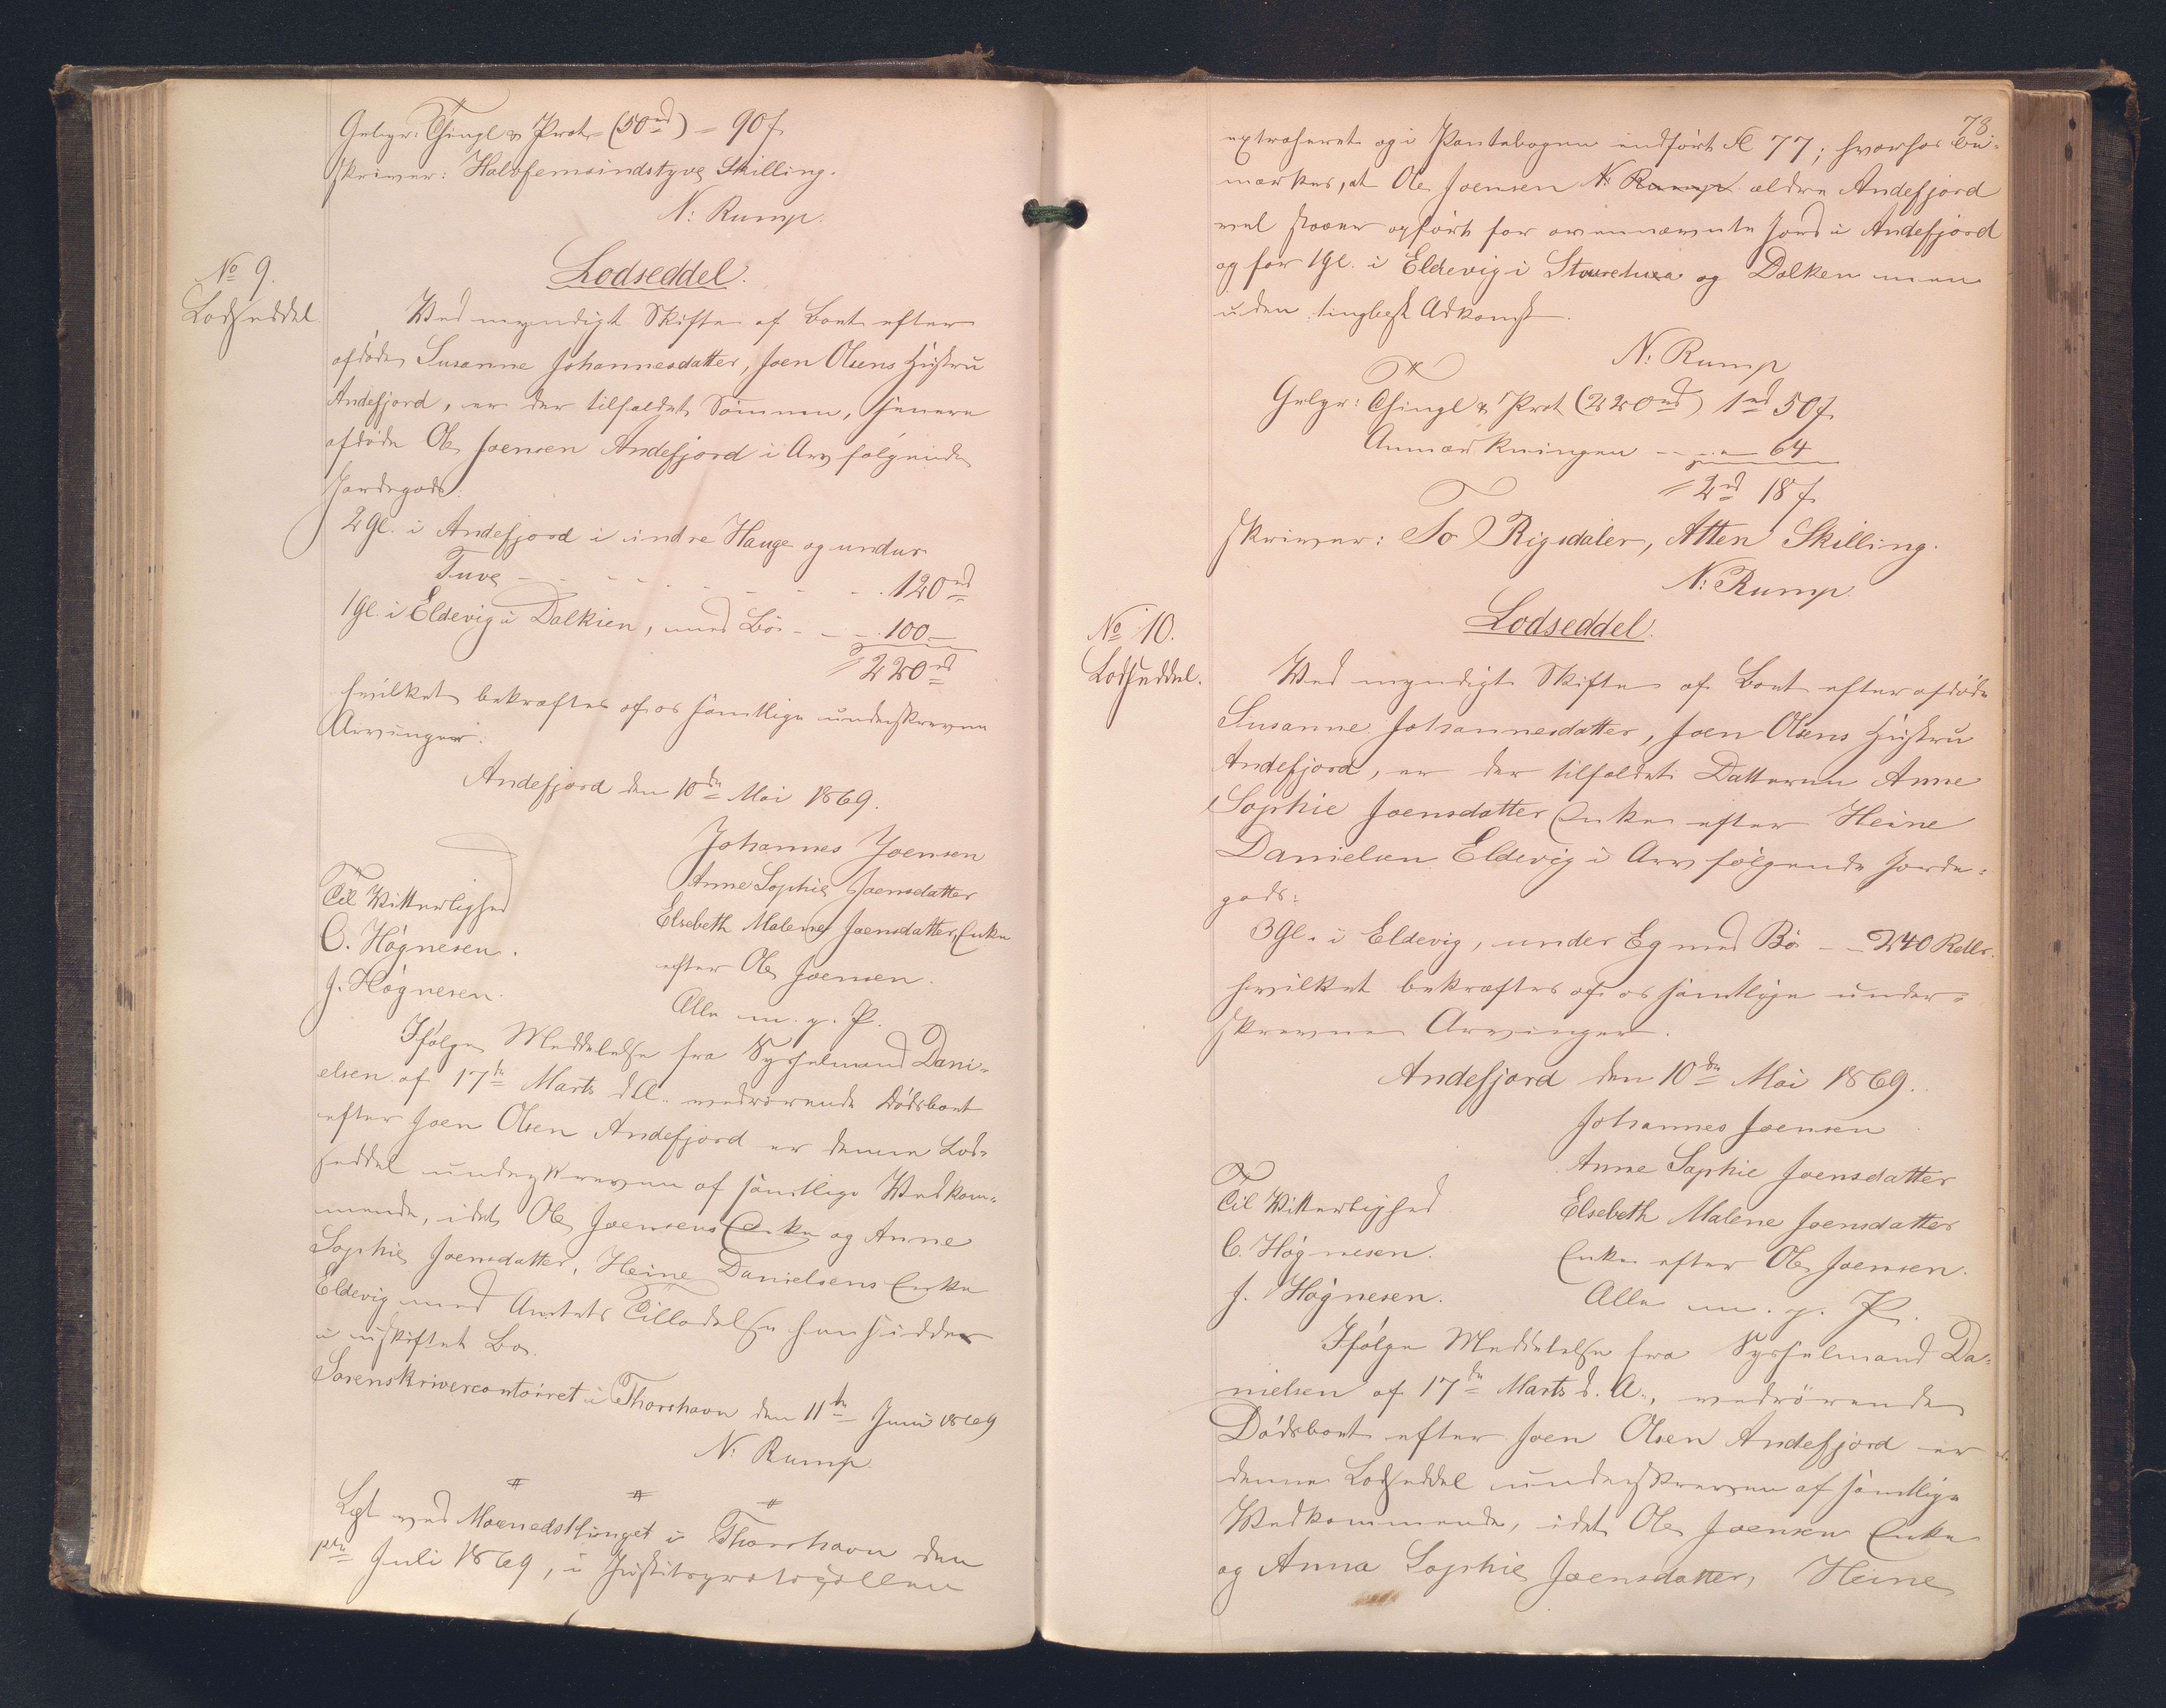 Gebyr: Thingl & Prot. (50rd) = 90 f.
skriver: Halvfemsindstyve Skilling.
N: Rump.
No 9.
Lodseddel.
Lodseddel.
Ved myndigt Skifte af Boet efter
afdøde Susanne Johannesdatter, Joen Olsens Hustru
Andefjord, er der tilfaldet Sønnen, senere
afdøde Ole Joensen Andefjord i Arv følgende
Jordegods
2 Gl. i Andefjord i indre Hauge og under
Tuve - - - - - - - - 120rd
1 Gl. i Eldevig i Dalkien, med Bø - - - 100 -
= 220rd
hvilket bekræftes af os samtlige underskrevne
Arvinger.
Andefjord den 10de Mai 1869.
Johannes Joensen
Anne Sophie Joensdatter
Elsebeth Malene Joensdatter, Enke
efter Ole Joensen.
Alle m. g. P.
Til Vitterlighed
O. Høgnesen.
J. Høgnesen.
Ifølge Meddelelse fra Sysselmand Dani-
elsen af 17de Marts d. A. vedrørende Dødsboet
efter Joen Olsen Andefjord er denne Lod-
seddel underskreven af samtlige Vedkom-
mende, idet Ole Joensens Enke og Anne
Sophie Joensdatter, Heine Danielsens Enke
Eldevig med Amtets Tilladelse hensidder
i uskiftet Bo.
Sorenskrivercontoiret i Thorshavn den 11te Juni 1869
N: Rump.
Læst ved Maanedsthinget i Thorshavn den
1ste Juli 1869, i Justitsprotocollen
78.
extraheret og i Pantebogen indført Fl 77; hvorhos be-
mærkes, at Ole Joensen N: Rump ældre Andefjord
vel staaer opført for ovennævnte Jord i Andefjord
og for 1 Gl. i Eldevig i og Dalken men
uden tinglæst Adkomst.
N: Rump
Gebyr: Thingl & Prot (220rd) 1rd 50 f.
Anmærkningen - - - 64
= 2rd 18 f.
skriver: To Rigsdaler, Atten Skilling.
N: Rump.
No 10.
Lodseddel.
Lodseddel.
Ved myndigt Skifte af Boet efter afdøde
Susanne Johannesdatter, Joen Olsens Hustru
Andefjord, er der tilfaldet Datteren Anne
Sophie Joensdatter Enke efter Heine
Danielsen Eldevig i Arv følgende Jorde-
gods:
3 Gl. i Eldevig, under Eg med Bø - - 240 Rdlr.
hvilket bekræftes af os samtlige under-
skrevne Arvinger.
Andefjord den 10de Mai 1869.
Johannes Joensen
Anne Sophie Joensdatter
Elsebeth Malene Joensdatter
Enke efter Ole Joensen.
Alle m. g. P.
Til Vitterlighed
O. Høgnesen.
J. Høgnesen.
Ifølge Meddelelse fra Sysselmand Da-
nielsen af 17de Marts d. A., vedrørende
Dødsboet efter Joen Olsen Andefjord er
denne Lodseddel underskreven af samtlige
Vedkommende, idet Ole Joensens Enke
og Anna Sophie Joensdatter, Heine